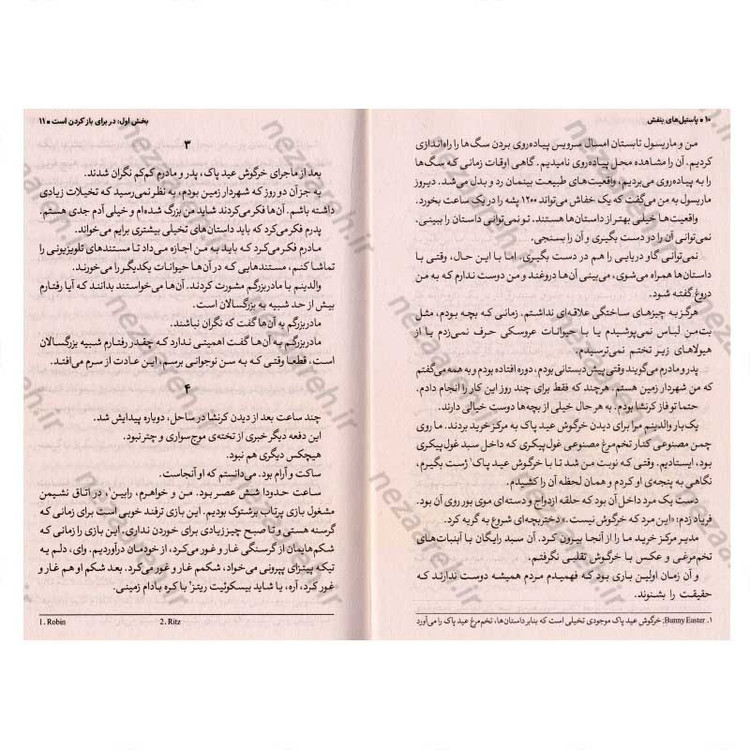 ۱۰ ● پاستیل‌های بنفش
من و ماریسول تابستان امسال سرویس پیاده‌روی بردن سگ‌ها را راه‌اندازی
کردیم. آن را مشاهده محل پیاده‌روی نامیدیم. گاهی اوقات زمانی که سگ‌ها
را به پیاده‌روی می‌بردیم، واقعیت‌های طبیعت بینمان رد و بدل می‌شد. دیروز
ماریسول به من می‌گفت که یک خفاش می‌تواند ۱۲۰۰ پشه را در یک ساعت بخورد.
واقعیت‌ها خیلی بهتر از داستان‌ها هستند. تو نمی‌توانی داستان را ببینی.
نمی‌توانی آن را در دست بگیری و آن را بسنجی.
نمی‌توانی گاو دریایی را هم در دست بگیری. اما با این حال، وقتی با
داستان‌ها همراه می‌شوی، می‌بینی آن‌ها دروغند و من دوست ندارم که به من
دروغ گفته شود.
هرگز به چیزهای ساختگی علاقه‌ای نداشتم. زمانی که بچه بودم، مثل
بت‌من لباس نمی‌پوشیدم یا با حیوانات عروسکی حرف نمی‌زدم یا از
هیولاهای زیر تختم نمی‌ترسیدم.
پدر و مادرم می‌گویند وقتی پیش‌دبستانی بودم، دوره افتاده بودم و به همه می‌گفتم
که من شهردار زمین هستم. هرچند که فقط برای چند روز این کار را انجام دادم.
حتما تو فاز کرنشا بودم. به هر حال خیلی از بچه‌ها دوست خیالی دارند.
یک بار والدینم مرا برای دیدن خرگوش عید پاک به مرکز خرید بردند. ما روی
چمن مصنوعی کنار تخم‌مرغ مصنوعی غول‌پیکری که داخل سبد غول‌پیکری
بود، ایستادیم. وقتی که نوبت من شد تا با خرگوش عید پاک¹ ژست بگیرم،
نگاهی به پنجه‌ی او کردم و همان لحظه آن را کشیدم.
دست یک مرد داخل آن بود که حلقه ازدواج و دسته‌ای موی بور روی آن بود.
فریاد زدم: «این مرد که خرگوش نیست.» دختربچه‌ای شروع به گریه کرد.
مدیر مرکز خرید ما را از آنجا بیرون کرد. آن سبد رایگان با آبنبات‌های
تخم‌مرغی و عکس با خرگوش تقلبی نگرفتم.
و آن زمان اولین باری بود که فهمیدم مردم همیشه دوست ندارند که
حقیقت را بشنوند.
۱. Bunny Easter: خرگوش عید پاک موجودی تخیلی است که بنابر داستان‌ها، تخم‌مرغ عید پاک را می‌آورد
بخش اول: در برای باز کردن است ● ۱۱
۳
بعد از ماجرای خرگوش عید پاک، پدر و مادرم کم‌کم نگران شدند.
به جز آن دو روز که شهردار زمین بودم، به نظر نمی‌رسید که تخیلات زیادی
داشته باشم. آن‌ها فکر می‌کردند شاید من بزرگ شده‌ام و خیلی آدم جدی هستم.
پدرم فکر می‌کرد که باید داستان‌های تخیلی بیشتری برایم می‌خواند.
مادرم فکر می‌کرد که باید به من اجازه می‌داد تا مستندهای تلویزیونی را
تماشا کنم، مستندهایی که در آن‌ها حیوانات یکدیگر را می‌خورند.
والدینم با مادربزرگم مشورت کردند. آن‌ها می‌خواستند بدانند که آیا رفتارم
بیش از حد شبیه به بزرگسالان است.
مادربزرگم به آن‌ها گفت که نگران نباشند.
مادربزرگم به آن‌ها گفت اهمیتی ندارد که چقدر رفتارم شبیه بزرگسالان
است، قطعا وقتی که به سن نوجوانی برسم، این عادت از سرم می‌افتد.
۴
چند ساعت بعد از دیدن کرنشا در ساحل، دوباره پیدایش شد.
این دفعه دیگر خبری از تخته‌ی موج‌سواری و چتر نبود.
هیچکس دیگری هم نبود.
ساکت و آرام بود. می‌دانستم که او آنجاست.
ساعت حدودا شش عصر بود. من و خواهرم، رابین¹، در اتاق نشیمن
مشغول بازی پرتاب برشتوک بودیم. این بازی ترفند خوبی است برای زمانی که
گرسنه هستی و تا صبح چیز زیادی برای خوردن نداری. این بازی را زمانی که
شکم‌هایمان از گرسنگی غار و غور می‌کرد، از خودمان درآوردیم. وای، دلم یه
تیکه پیتزای پپرونی می‌خواد، شکمم غار و غور می‌کرد. بعد شکم او هم غار و
غور کرد، آره، یا شاید بیسکوئیت ریتز² با کره بادام زمینی.
1. Robin 2. Ritz
nezaareh.ir